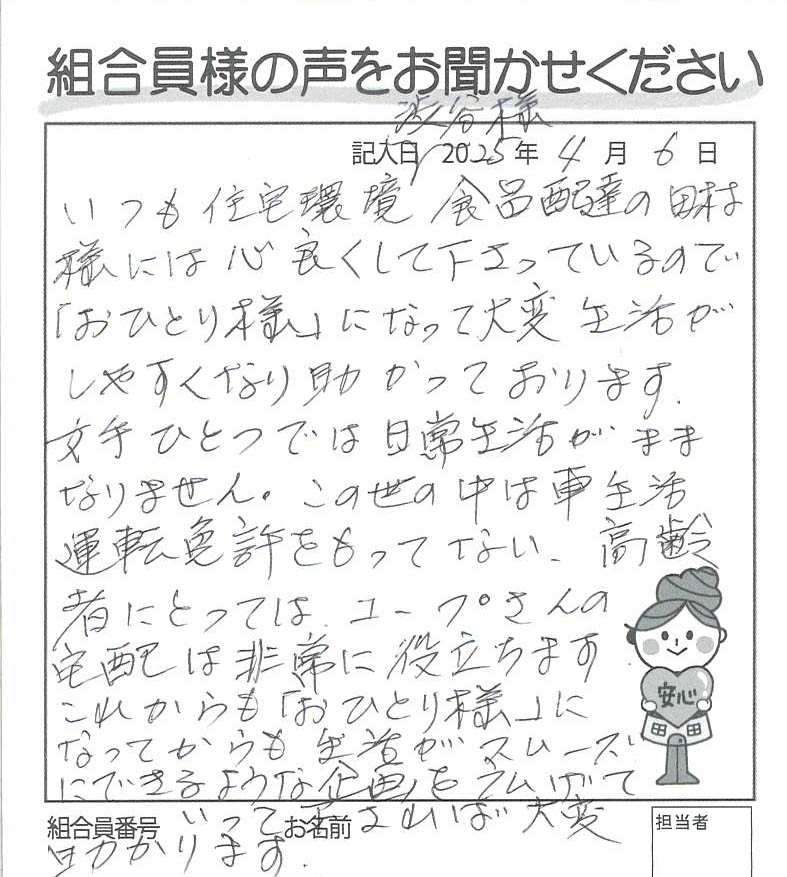 組合員様の声をお聞かせください
渋谷様
記入日 2025年 4月 6日
いつも住宅環境 食品配達の田村
様には心良くして下さっているので
「おひとり様」になって大変生活が
しやすくなり助かっております.
文手ひとつでは日常生活がまま
なりません。この世の中は車生活
運転免許をもってない、高齢
者にとっては、コープさんの
宅配は非常に役立ちます
これからも「おひとり様」に
なってからも生活がスムーズ
にできるような企画を広げて
いって下されば大変
助かります.
安心
組合員番号 お名前
担当者